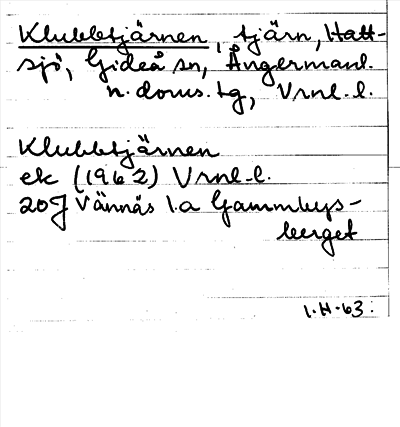 Klubbtjärnen, tjärn, Hatt-
sjö, Gideå sn, Ångermanl.
n. doms. tg, Vrnl. l.
Klubbtjärnen
ek (1962) Vrnl. l.
20J Vännäs 1.a Gammbys-
berget
1.H.63.